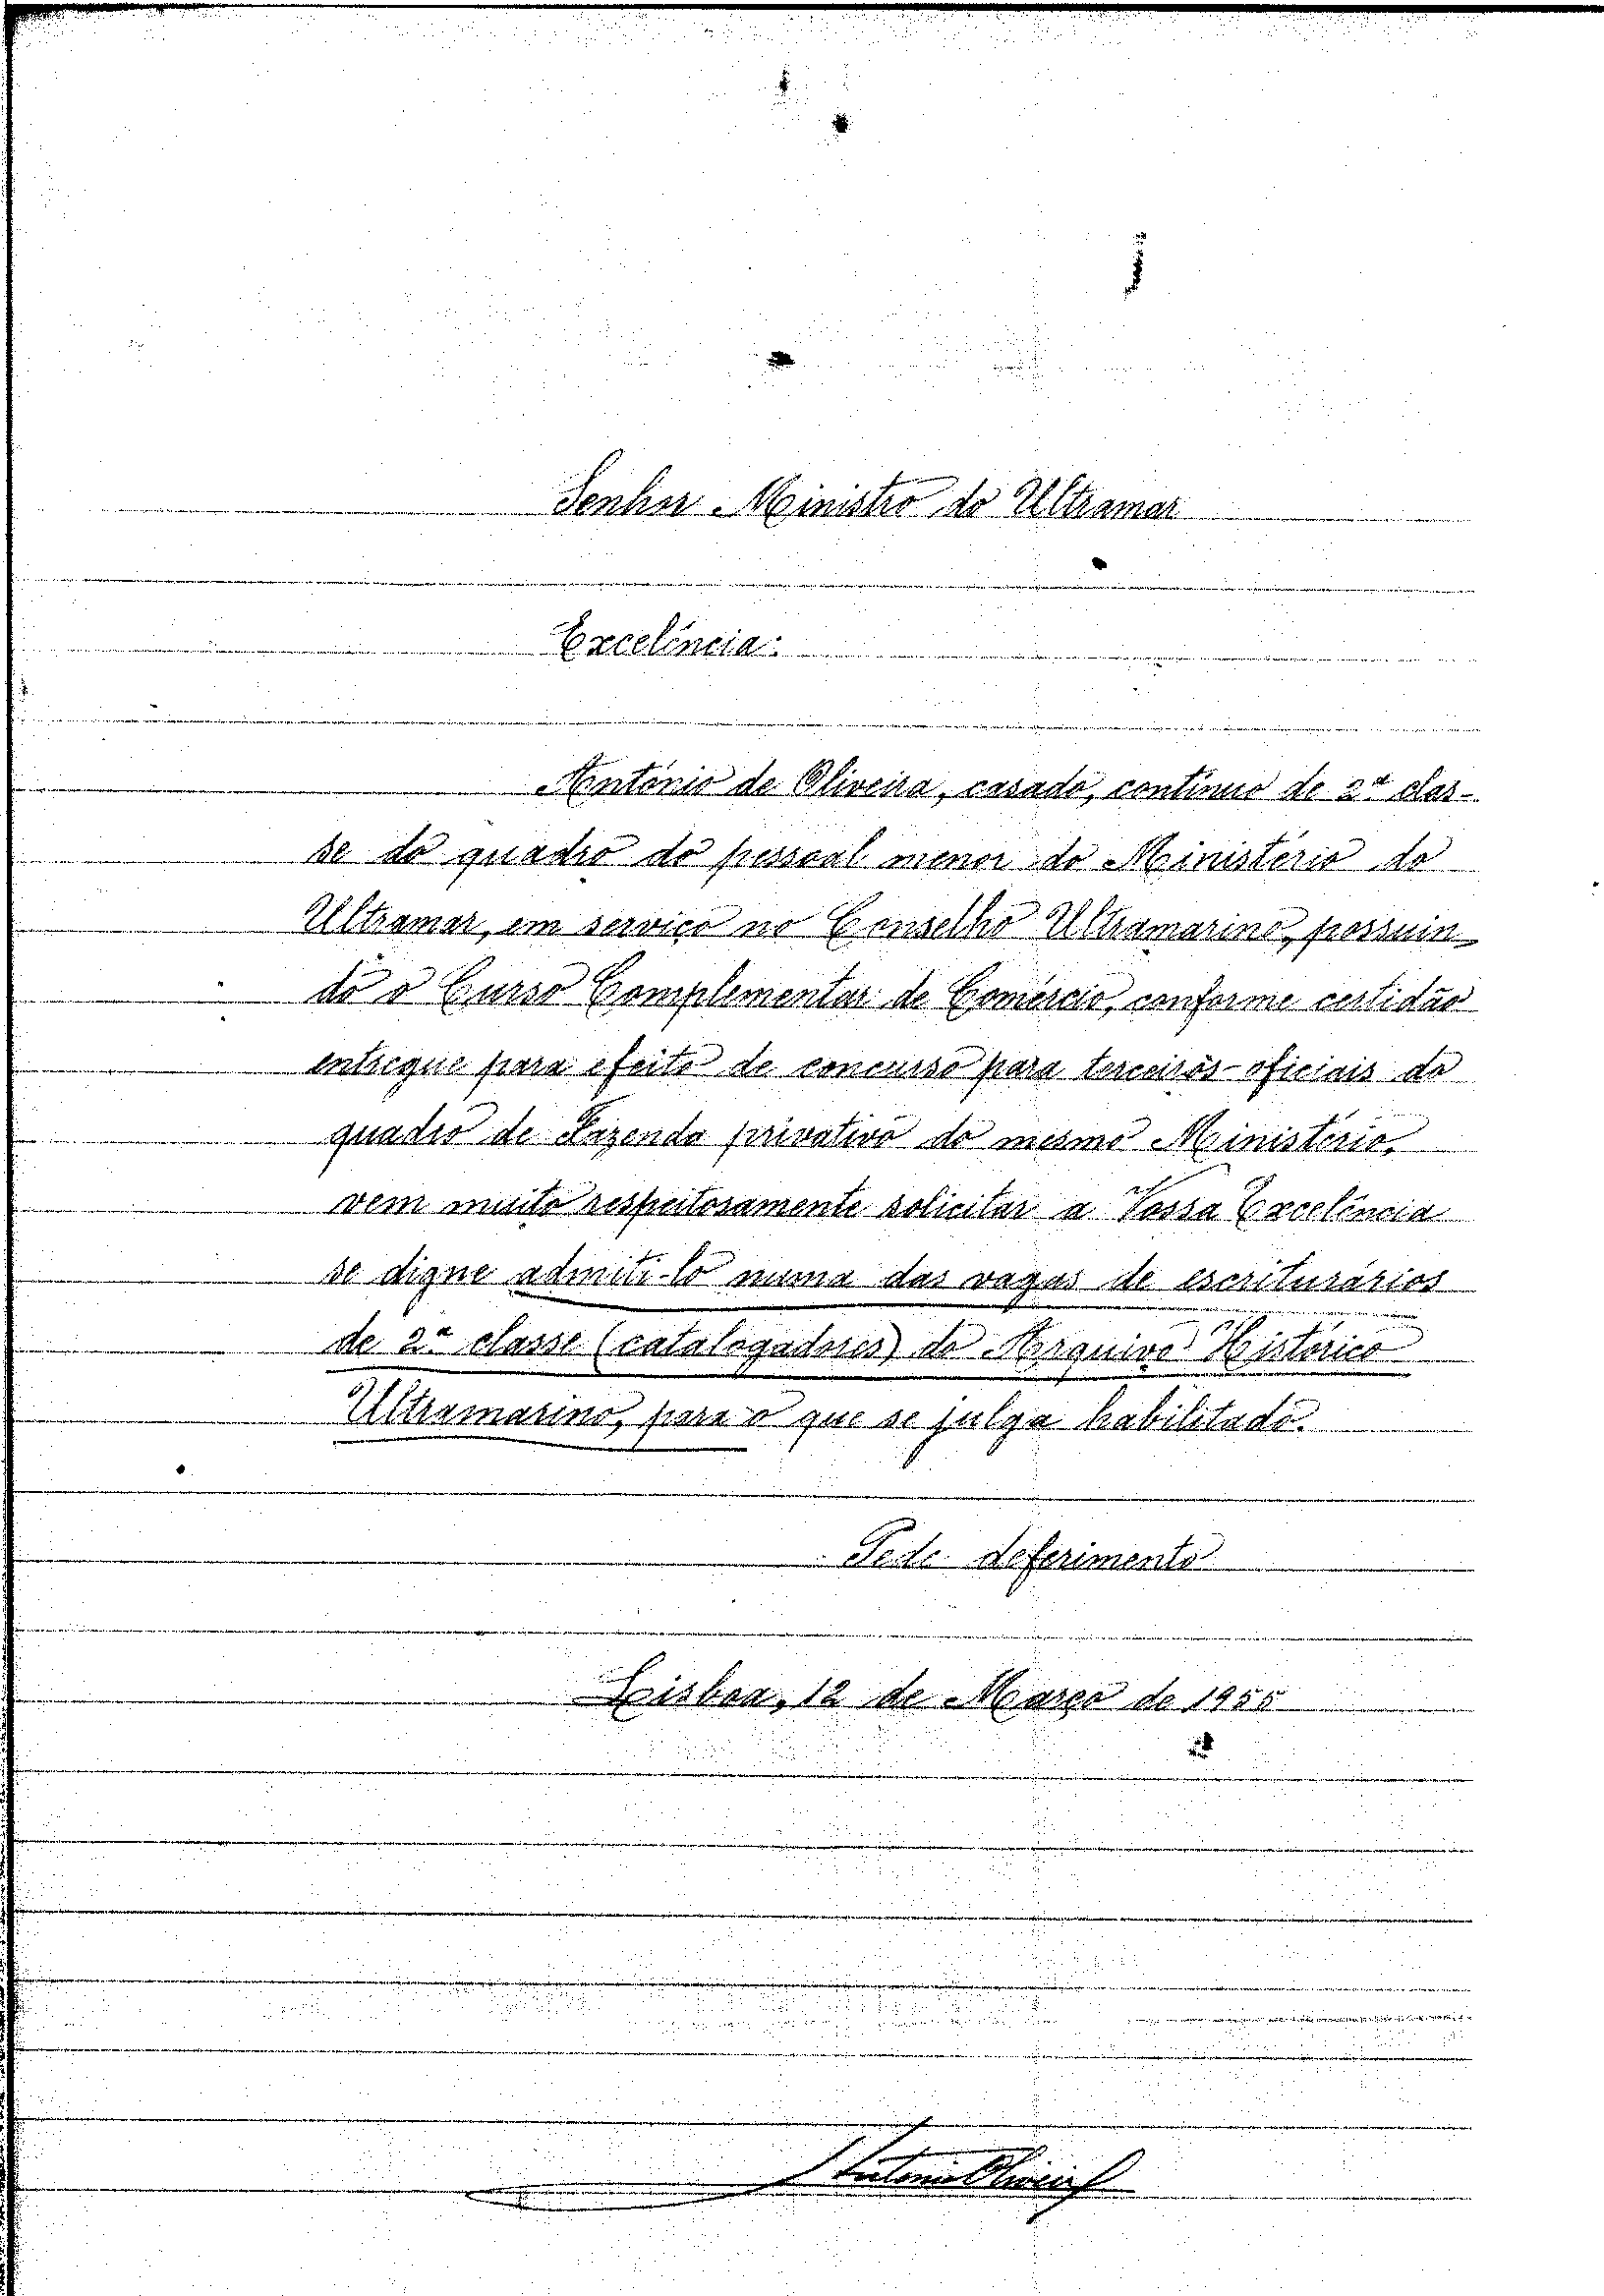 Senhor Ministro do Ultramar
Excelência:
António de Oliveira, casado, contínuo de 2ª clas-
se do quadro do pessoal menor do Ministério do
Ultramar, em serviço no Conselho Ultramarino, possuin-
do o Curso Complementar de Comércio, conforme certidão
entregue para efeito de concurso para terceiros-oficiais do
quadro de Fazenda privativo do mesmo Ministério,
vem muito respeitosamente solicitar a Vossa Excelência
se digne admiti-lo numa das vagas de escriturários
de 2ª classe (catalogadores) do Arquivo Histórico
Ultramarino, para o que se julga habilitado.
Pede deferimento
Lisboa, 12 de Março de 1955
António Oliveira